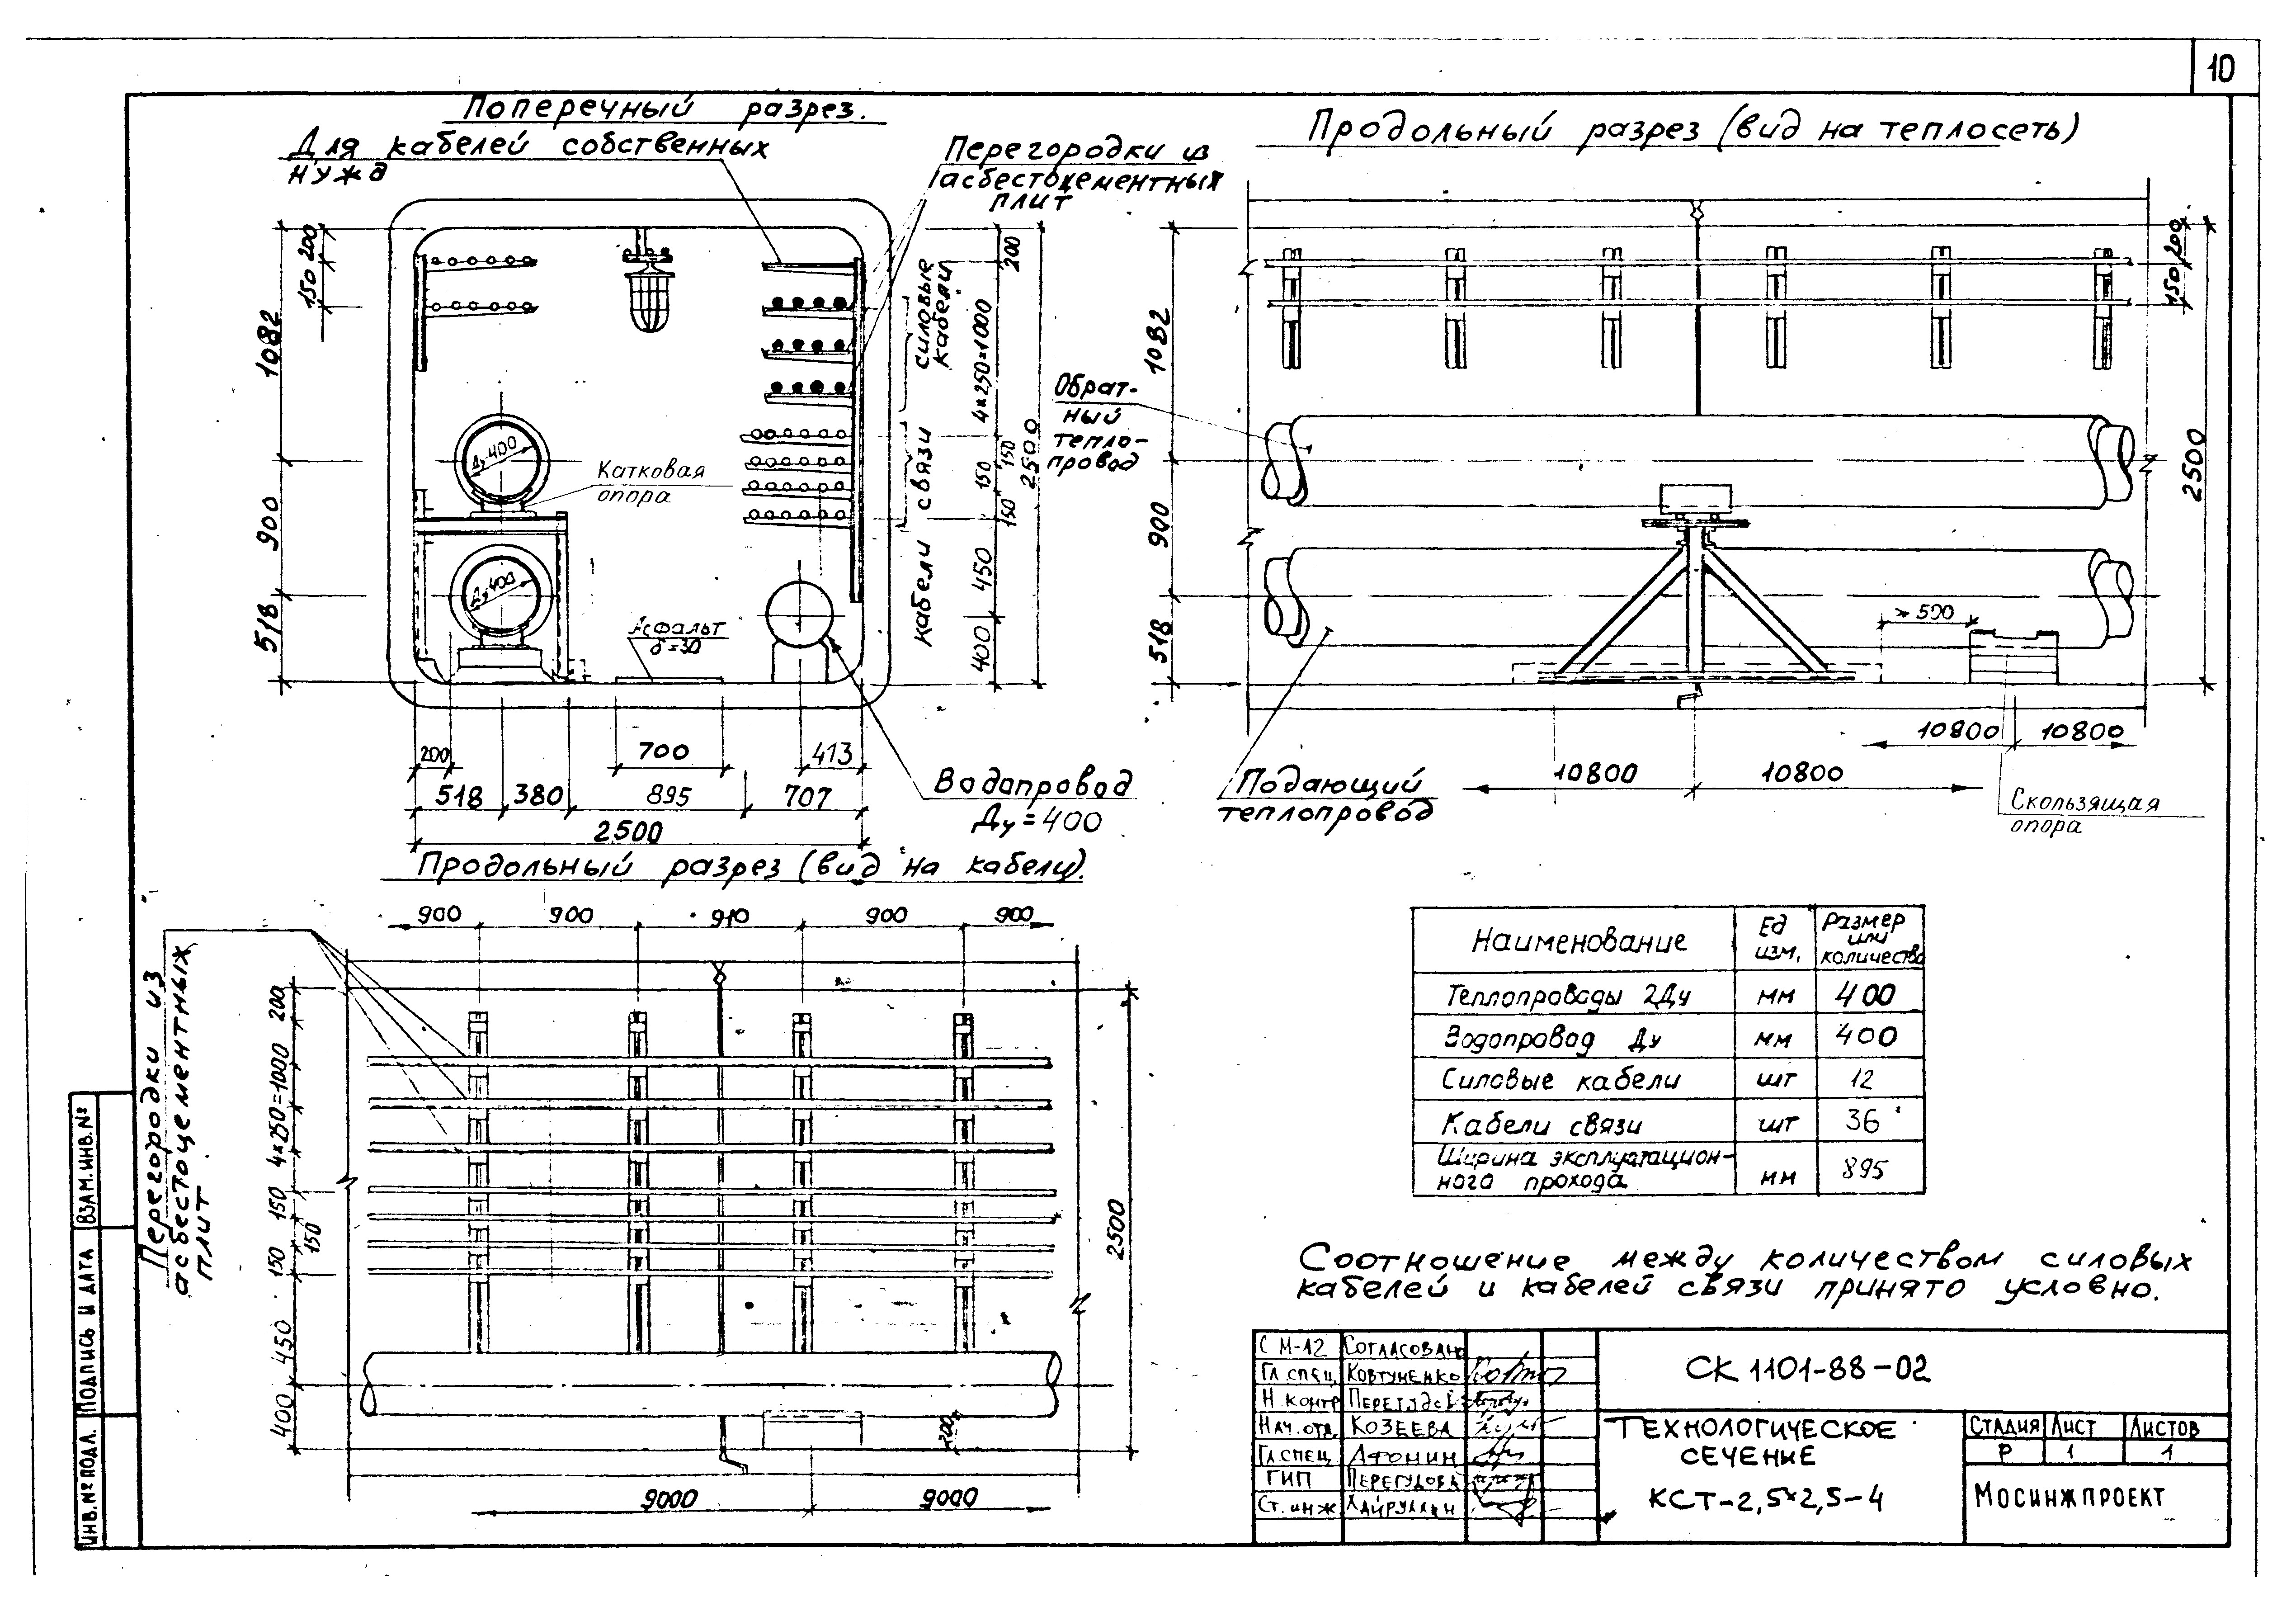 10
Поперечный разрез.
Для кабелей собственных
нужд
Перегородки из
асбестоцементных
плит
200
150
1082
900
518
Ду 400
Ду 400
Катковая
опора
Асфальт
δ=30
силовые
кабели
кабели связи
200
4×250=1000
150
150
150
450
400
2500
200
700
413
518
380
895
707
2500
Водопровод
Ду=400
Продольный разрез (вид на теплосеть)
1082
900
518
Обрат-
ный
тепло-
провод
200
150
2500
> 500
10800
10800
10800
10800
Подающий
теплопровод
Скользящая
опора
Продольный разрез (вид на кабели).
900
900
910
900
900
Перегородки из
асбестоцементных
плит
200
4×250=1000
150
150
150
450
400
2500
200
9000
9000
Наименование
Ед
изм.
Размер
или
количество
Теплопроводы 2Ду мм 400
Водопровод Ду мм 400
Силовые кабели шт 12
Кабели связи шт 36
Ширина эксплуатацион-
ного прохода мм 895
Соотношение между количеством силовых
кабелей и кабелей связи принято условно.
С М-12 Согласовано
Гл.спец. Ковтуненко
Н.контр
Нач.отд. Козеева
Гл.спец. Афонин
ГИП Перегудова
Ст.инж. Хайруллин
СК 1101-88-02
Технологическое
сечение
КСТ-2,5×2,5-4
Стадия Лист Листов
Р 1 1
Мосинжпроект
Взам.инв.№
Подпись и дата
Инв.№ подл.